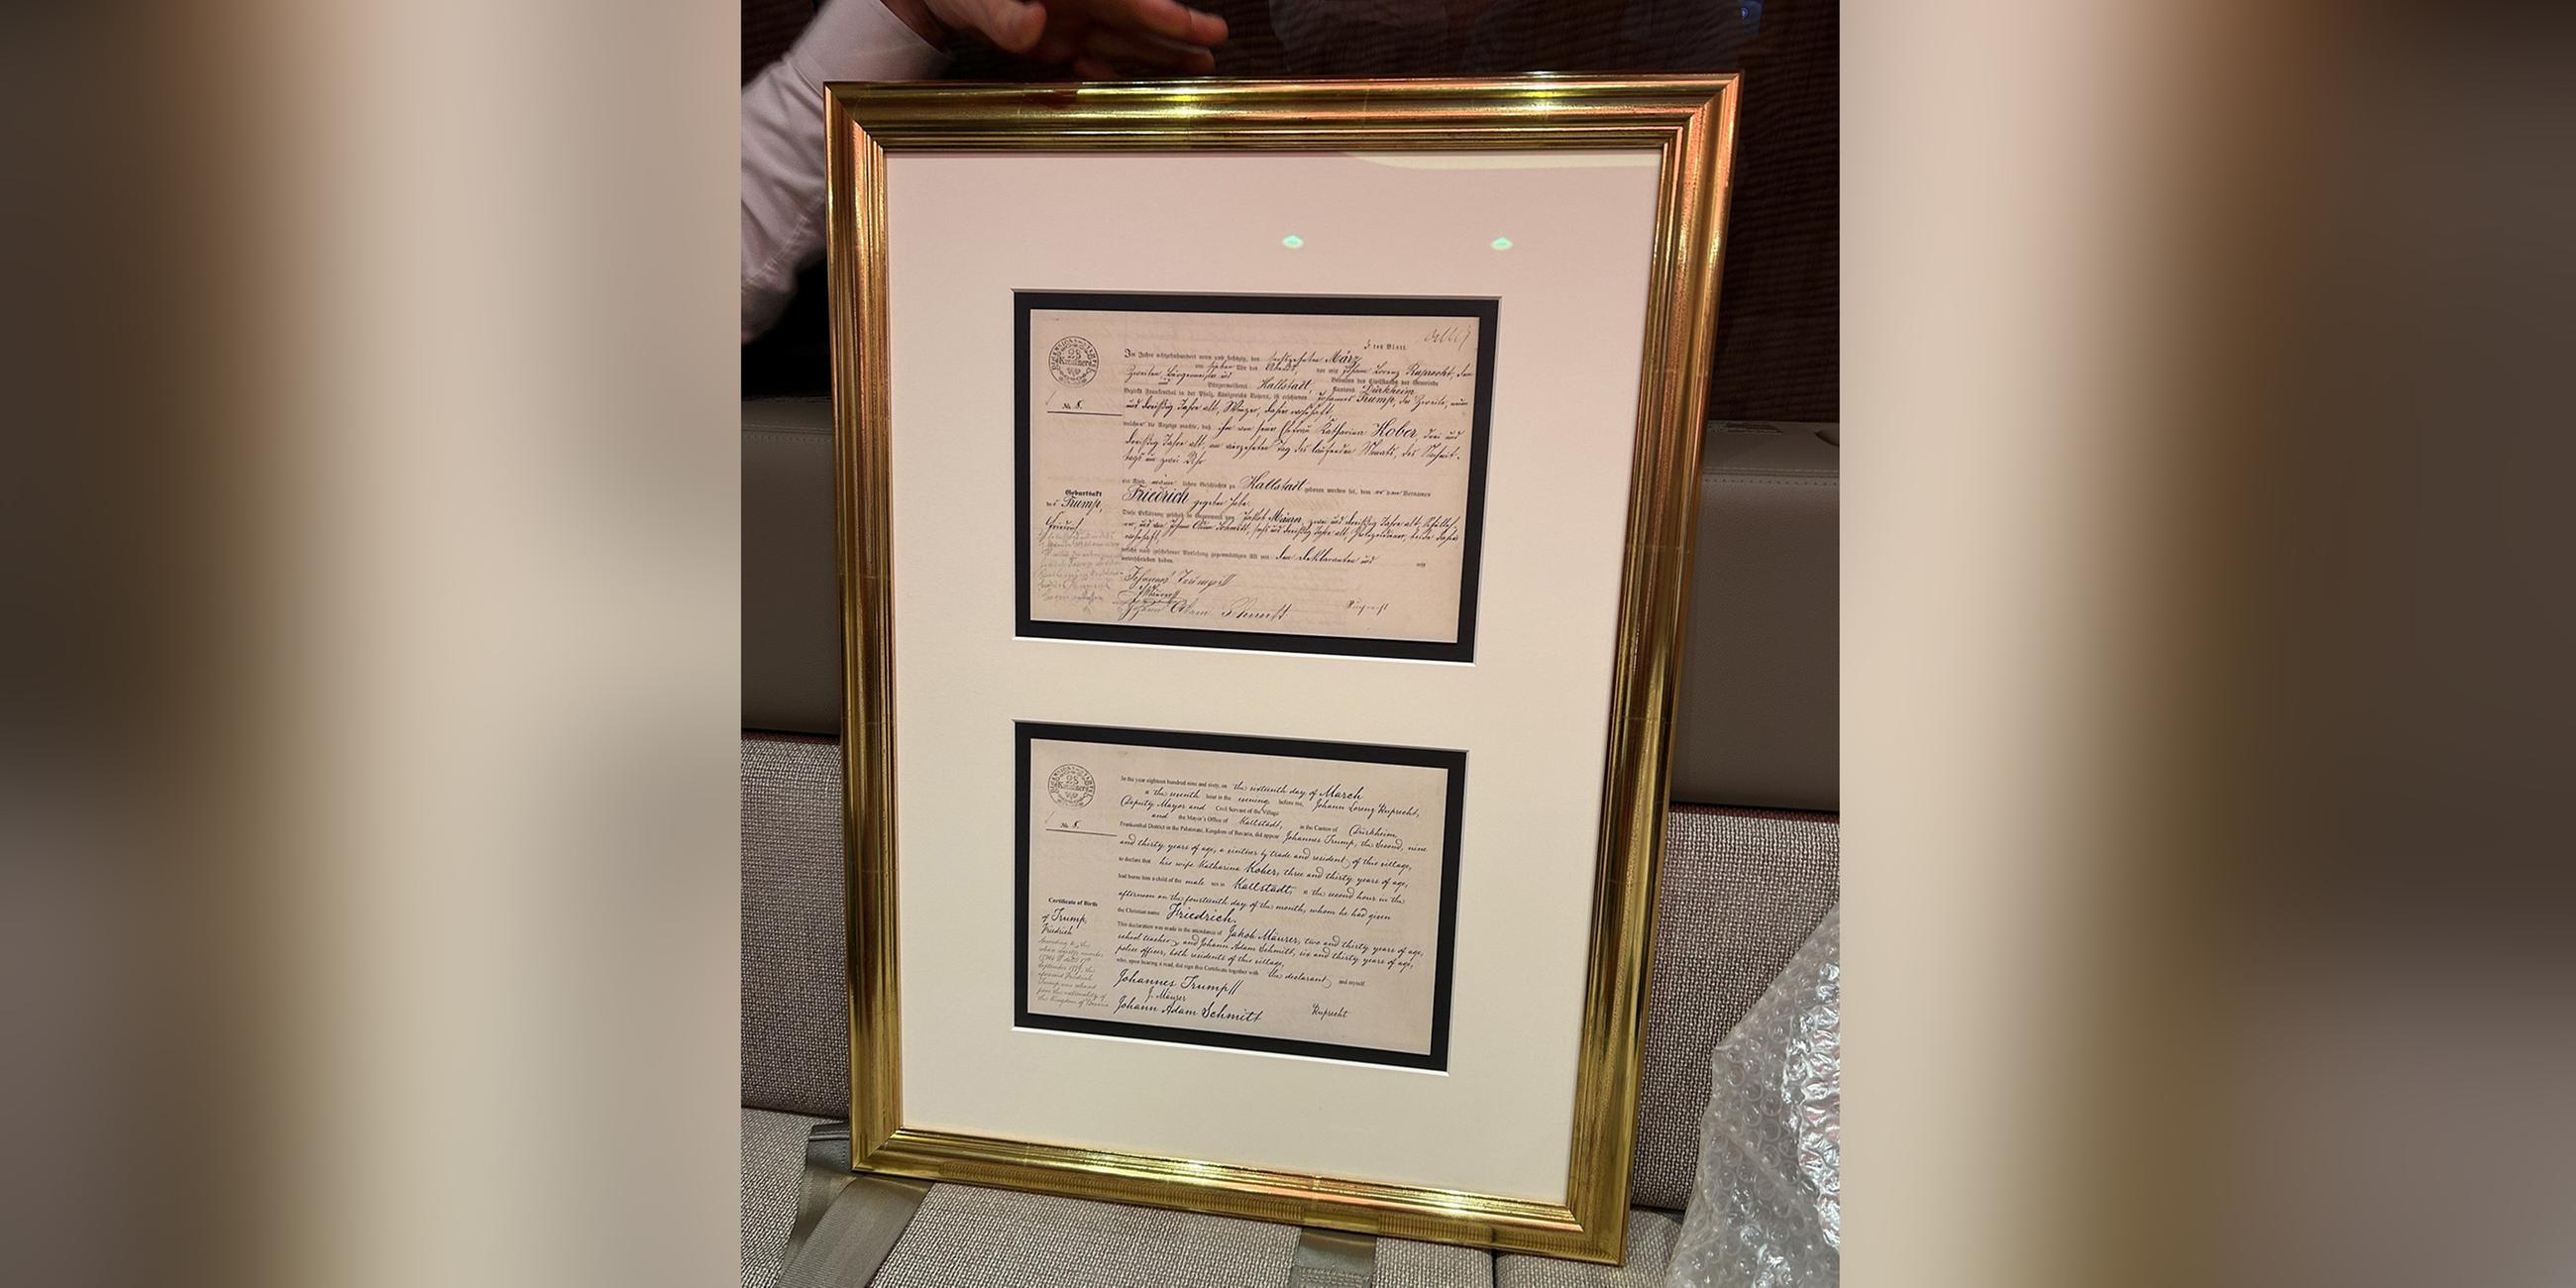 25
Kreuzer
No. 8.
Im Jahre achtzehnhundert neun und sechzig, den sechszehnten März
um sieben Uhr des Abends, vor mir Johann Lorenz Ruprecht, dem
Zweiten Bürgermeister und Beamten des Civilstandes der Gemeinde
Bürgermeisterei Kallstadt, Kantons Dürkheim,
Bezirks Frankenthal in der Pfalz, Königreichs Bayern, ist erschienen Johannes Trump, der Zweite, neun
und dreißig Jahre alt, Winzer, dahier wohnhaft,
welcher die Anzeige machte, daß ihm von seiner Ehefrau Katharina Kober, drei und
dreißig Jahre alt, am vierzehnten Tag des laufenden Monats, des Nachmit-
tags um zwei Uhr
Geschlechts zu Kallstadt geboren worden sei, dem er den Vornamen
Friedrich gegeben habe.
Geburtsakt
Trump,
Friedrich
Diese Erklärung geschah in Gegenwart von Jakob Mäurer, zwei und dreißig Jahre alt,
und von Johann Adam Schmitt, sechs und dreißig Jahre alt, Polizeidiener, beide dahier
wohnhaft,
welche nach geschehener Vorlesung gegenwärtigen Akt mit dem Deklaranten und mir
unterschrieben haben.
Johannes Trump II
J. Mäurer
Johann Adam Schmitt Ruprecht
25
Kreuzer
No. 8.
In the year eighteen hundred nine and sixty, on the sixteenth day of March
a the seventh hour in the evening before me, Johann Lorenz Ruprecht,
Deputy Mayor and Civil Servant of the Village
and the Mayor's Office of Kallstadt, in the Canton of Dürkheim,
Frankenthal District in the Palatinate, Kingdom of Bavaria, did appear Johannes Trump, the Second, nine
and thirty years of age, a vintner by trade and resident of this village,
to declare that his wife Katharina Kober, three and thirty years of age,
had borne him a child of the male sex in Kallstadt, in the second hour in the
afternoon on the fourteenth day of the month, whom he had given
the Christian name Friedrich.
Certificate of Birth
of Trump,
Friedrich
This declaration was made in the attendance of Jakob Mäurer, two and thirty years of age,
school teacher, and Johann Adam Schmitt, six and thirty years of age,
police officer, both residents of this village,
who, upon hearing it read, did sign this Certificate together with the declarant, and myself
Johannes Trump II
J. Mäurer
Johann Adam Schmitt Ruprecht